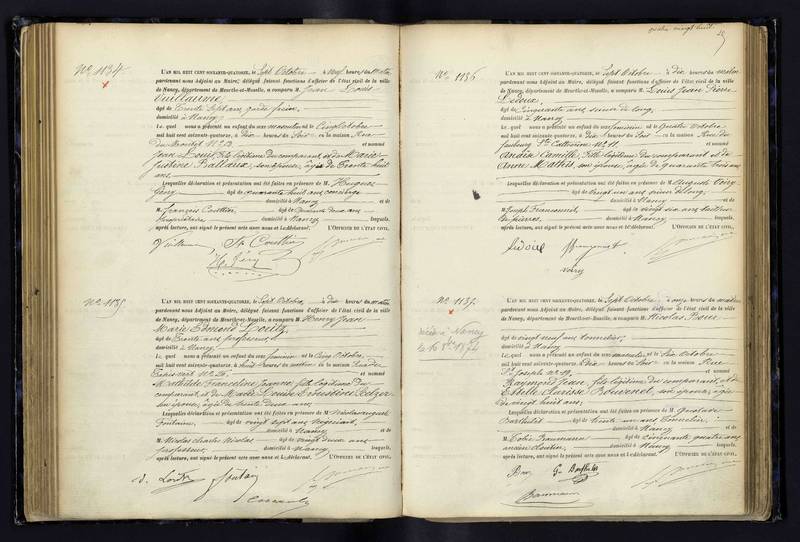 Nº 1134
L'AN MIL HUIT CENT SOIXANTE-QUATORZE, le Sept Octobre à neuf heures du matin
pardevant nous Adjoint au Maire, délégué faisant fonctions d'officier de l'état civil de la ville
de Nancy, département de Meurthe-et-Moselle, a comparu M. Jean Louis
Vuillaume,
âgé de trente sept ans,
domicilié à Nancy
Le quel nous a présenté un enfant du sexe masculin né le Cinq Octobre
mil huit cent soixante-quatorze, à Dix heures du Soir en la maison Rue
et nommé
Jean Louis, fils légitime du comparant, et de Marie
Justine son épouse, âgée de trente huit
ans,
Lesquelles déclaration et présentation ont été faites en présence de M. Hugues
Gény âgé de quarante huit ans concierge
domicilié à Nancy et de
M. François âgé de ans
propriétaire domicilié à Nancy lesquels,
après lecture, ont signé le présent acte avec nous et le déclarant. L'OFFICIER DE L'ÉTAT CIVIL,
Nº 1135
L'AN MIL HUIT CENT SOIXANTE-QUATORZE, le Sept Octobre, à dix heures du matin
pardevant nous Adjoint au Maire, délégué faisant fonctions d'officier de l'état civil de la ville
de Nancy, département de Meurthe-et-Moselle, a comparu M. Henry Jean
Marie Edmond
âgé de trente ans, professeur
domicilié à Nancy
Le quel nous a présenté un enfant du sexe féminin né le Cinq Octobre,
mil huit cent soixante-quatorze, à huit heures du matin en la maison Rue des
Nº 26, et nommé
Mathilde Franceline Jeanne, fille légitime du
comparant, et de Marie Louise Ernestine
son épouse, âgée de trente deux ans
Lesquelles déclaration et présentation ont été faites en présence de M. Nicolas Auguste
Fontaine, âgé de vingt sept ans, négociant,
domicilié à Nancy et de
M. Nicolas Charles Nicolas âgé de vingt deux ans
professeur domicilié à Nancy lesquels,
après lecture, ont signé le présent acte avec nous et le déclarant. L'OFFICIER DE L'ÉTAT CIVIL,
quatre vingt huit
Nº 1136
L'AN MIL HUIT CENT SOIXANTE-QUATORZE, le Sept Octobre à dix heures du matin
pardevant nous Adjoint au Maire, délégué faisant fonctions d'officier de l'état civil de la ville
de Nancy, département de Meurthe-et-Moselle, a comparu M. Louis Jean Pierre
Ledoux,
âgé de Cinquante ans, scieur de long,
domicilié à Nancy
Le quel nous a présenté un enfant du sexe féminin né le Quatre Octobre
mil huit cent soixante-quatorze, à Dix heures du Soir en la maison Rue du
faubourg Ste Catherine Nº 11. et nommé
Camille, fille légitime du comparant et de
Anne Mathis, son épouse, âgée de quarante trois ans
Lesquelles déclaration et présentation ont été faites en présence de M. Auguste
âgé de vingt un ans, scieur de long,
domicilié à Nancy et de
M. Joseph âgé de vingt six ans, tailleur
de pierres, domicilié à Nancy lesquels,
après lecture, ont signé le présent acte avec nous et le déclarant. L'OFFICIER DE L'ÉTAT CIVIL,
Nº 1137
à Nancy
L'AN MIL HUIT CENT SOIXANTE-QUATORZE, le Sept Octobre à onze heures du matin
pardevant nous Adjoint au Maire, délégué faisant fonctions d'officier de l'état civil de la ville
de Nancy, département de Meurthe-et-Moselle, a comparu M. Nicolas
âgé de vingt neuf ans, tonnelier,
domicilié à Nancy
Le quel nous a présenté un enfant du sexe masculin né le Six Octobre
mil huit cent soixante-quatorze, à Dix heures du Soir en la maison Rue
St Joseph Nº 19, et nommé
Raymond Jean, fils légitime du comparant, et de
Clarisse son épouse, âgée
de vingt huit ans,
Lesquelles déclaration et présentation ont été faites en présence de M. Gustave
Barthelet âgé de trente un ans, tonnelier,
domicilié à Nancy et de
M. Baumann âgé de cinquante quatre ans
ancien domicilié à Nancy lesquels,
après lecture, ont signé le présent acte avec nous et le déclarant. L'OFFICIER DE L'ÉTAT CIVIL,
Baumann